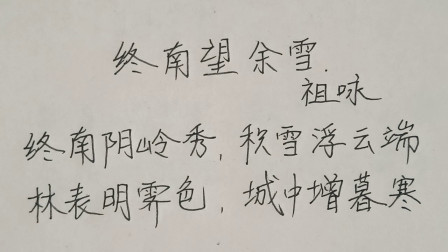 终南望余雪.
祖咏
终南阴岭秀,积雪浮云端
林表明霁色,城中增暮寒